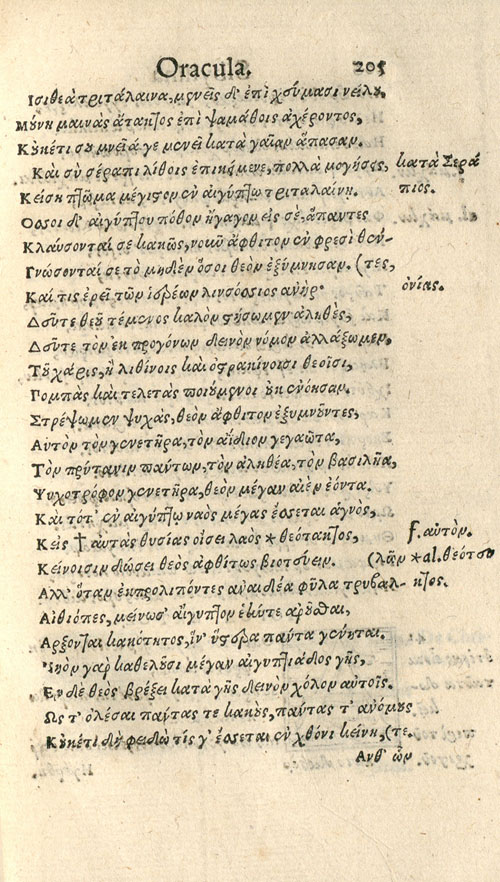 Oracula. 205
Ισι θεὰ τριτάλαινα, μενεῖς δ' ἐπὶ χούμασι νείλου,
Μούνη μαινὰς ἄτακτος ἐπὶ ψαμάθοις ἀχέροντος,
Κουκέτι σου μνεία γε μενεῖ κατὰ γαῖαν ἅπασαν.
Καὶ σὺ σέραπι λίθοις ἐπικείμενε, πολλὰ μογήσεις, κατὰ Σερά
Κείσῃ πτῶμα μέγιστον ἐν αἰγύπτῳ τριταλαίνῃ. πιος.
Οσσοι δ' αἰγύπτου πόθον ἤγαγον εἰς σὲ, ἅπαντες
Κλαύσονταί σε κακῶς, νοῦν ἄφθιτον ἐν φρεσὶ θέν-
Γνώσονταί σε τὸ μηδὲν ὅσοι θεὸν ἐξύμνησαν. (τες,
Καί τις ἐρεῖ τῶν ἱερέων λινόστολος ἀνήρ· ὀνίας.
Δεῦτε θεοῦ τέμενος καλὸν στήσωμεν ἀληθὲς,
Δεῦτε τὸν ἐκ προγόνων δεινὸν νόμον ἀλλάξωμεν,
Τοῦ χάρις, ἢ λιθίνοις καὶ ὀστρακίνοισι θεοῖσι,
Πομπὰς καὶ τελετὰς ποιούμενοι οὐκ ἐνόησαν.
Στρέψωμεν ψυχὰς, θεὸν ἄφθιτον ἐξυμνοῦντες,
Αὐτὸν τὸν γενετῆρα, τὸν ἀΐδιον γεγαῶτα,
Τὸν πρύτανιν πάντων, τὸν ἀληθέα, τὸν βασιλῆα,
Ψυχοτρόφον γενετῆρα, θεὸν μέγαν αἰὲν ἐόντα.
Καὶ τότ' ἐν αἰγύπτῳ ναὸς μέγας ἔσσεται ἁγνὸς,
Κεἰς † αὐτὰς θυσίας οἴσει λαὸς * θεότακτος, f. αὐτὸν.
Κείνοισιν δώσει θεὸς ἀφθίτως βιοτεύειν. (λᾶον * al. θεότευ
Αλλ' ὅταν ἐκπρολιπόντες ἀναιδέα φῦλα τριβαλ- κτος.
Αἰθιόπες, μείνωσ' αἴγυπτον ἑὴν τε ἀροῦσθαι,
Αρξονται κακότητος, ἵν' ὕστερα πάντα γένηται.
Νηὸν γὰρ καθελοῦσι μέγαν αἰγυπτιάδος γῆς,
Εν δὲ θεὸς βρέξει κατὰ γῆς δεινὸν χόλον αὐτοῖς.
Ως τ' ὀλέσαι πάντας τε κακοὺς, πάντας τ' ἀνόμους
Κοὐκέτι δὴ φειδώ τίς γ' ἔσσεται ἐν χθόνι κείνῃ, (τε.
Ανθ' ὧν